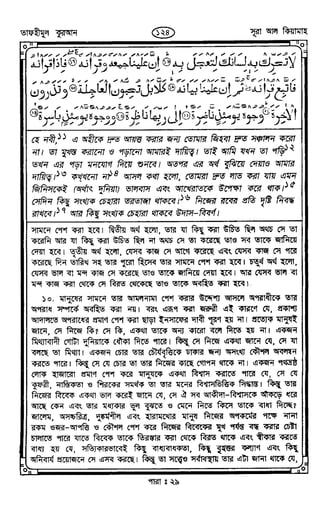 তাফহীমুল কুরআন
১২৪
সূরা আল কিয়ামাহ
لَا تُحَرِّكْ بِهِ لِسَانَكَ لِتَعْجَلَ بِهِ ۝ إِنَّ عَلَيْنَا جَمْعَهُ وَقُرْآنَهُ ۝ فَإِذَا قَرَأْنَاهُ
فَاتَّبِعْ قُرْآنَهُ ۝ ثُمَّ إِنَّ عَلَيْنَا بَيَانَهُ ۝ كَلَّا بَلْ تُحِبُّونَ الْعَاجِلَةَ ۝ وَتَذَرُونَ
الْآخِرَةَ ۝ وُجُوهٌ يَوْمَئِذٍ نَاضِرَةٌ ۝ إِلَى رَبِّهَا نَاظِرَةٌ ۝ وَوُجُوهٌ يَوْمَئِذٍ بَاسِرَةٌ
হে নবী,১১ এ অহীকে দ্রুত আয়ত্ত করার জন্য তোমার জিহবা দ্রুত সঞ্চালন করো
না। তা মুখস্ত করানো ও পড়ানো আমারই দায়িত্ব। তাই আমি যখন তা পড়ি১২
তখন এর পড়া মনযোগ দিয়ে শুনবে। অতপর এর অর্থ বুঝিয়ে দেয়াও আমার
দায়িত্ব।১৩ কখ্খনো না১৪ আসল কথা হলো, তোমরা দ্রুত লাভ করা যায় এমন
জিনিসকেই (অর্থাৎ দুনিয়া) ভালবাস এবং আখেরাতকে উপেক্ষা করে থাক।১৫
সেদিন কিছু সংখ্যক চেহারা তরতাজা থাকবে।১৬ নিজের রবের প্রতি দৃষ্টি নিবদ্ধ
রাখবে।১৭ আর কিছু সংখ্যক চেহারা থাকবে উদাস-বিবর্ণ।
সামনে পেশ করা হবে। দ্বিতীয় অর্থ হলো, তার যা কিছু করা উচিত ছিল অথচ সে তা
করেনি আর যা কিছু করা উচিত ছিল না অথচ সে তা করেছে তাও সব তাকে জানিয়ে
দেয়া হবে। তৃতীয় অর্থ হলো, যেসব কাজ সে আগে করেছে এবং যেসব কাজ সে পরে
করেছে দিন তারিখ সহ তার পুরো হিসেব তার সামনে পেশ করা হবে। চতুর্থ অর্থ হলো,
যেসব ভাল বা মন্দ কাজ সে করেছে তাও তাকে জানিয়ে দেয়া হবে। আর যেসব ভাল বা
মন্দ কাজ করা থেকে সে বিরত থেকেছে তাও তাকে অবহিত করা হবে।
১০. মানুষের সামনে তার আমলনামা পেশ করার উদ্দেশ্য আসলে অপরাধীকে তার
অপরাধ সম্পর্কে অবহিত করা নয়। বরং এরূপ করা জরুরী এই কারণে যে, প্রকাশ্য
আদালতে অপরাধের প্রমাণ পেশ করা ছাড়া ইনসাফের দাবী পূরণ হয় না। প্রত্যেক মানুষই
জানে, সে নিজে কি? সে কি, একথা তাকে অন্য কারো বলে দিতে হয় না। একজন
মিথ্যাবাদী গোটা দুনিয়াকে ধোঁকা দিতে পারে। কিন্তু সে নিজে একথা জানে যে, সে যা
বলছে তা মিথ্যা। একজন চোর তার চৌর্যবৃত্তিকে ঢাকার জন্য অসংখ্য কৌশল অবলম্বন
করতে পারে। কিন্তু সে যে চোর তা তার নিজের কাছে গোপন থাকে না। একজন পথভ্রষ্ট
লোক হাজারো প্রমাণ পেশ করে মানুষকে একথা বিশ্বাস করাতে পারে যে, সে যে
কুফরী, নাস্তিকতা ও শিরকের সমর্থক তা তার মনের বিশ্বাসভিত্তিক সিদ্ধান্ত। কিন্তু তার
নিজের বিবেক একথা ভাল করেই জানে যে, সে ঐ সব আকীদা-বিশ্বাসকে আঁকড়ে ধরে
আছে কেন এবং তার মধ্যকার ভুল বুঝতে ও মেনে নিতে কিসে তাকে বাধা দিচ্ছে?
জালেম, অসচ্চরিত্র, দুষ্কর্মশীল এবং হারামখোর মানুষ নিজের অপকর্মের পক্ষে নানা
রকম ওজর-আপত্তি ও কৌশল পেশ করে নিজের বিবেকের মুখ পর্যন্ত বন্ধ করার চেষ্টা
চালাতে পারে যাতে বিবেক তাকে তিরস্কার করা থেকে বিরত থাকে এবং স্বীকার করতে
বাধ্য হয় যে, সত্যিকারভাবেই কিছু বাধ্যবাধকতা, কিছু বৃহত্তর কল্যাণ এবং কিছু
অনিবার্য প্রয়োজনে সে এসব করছে। কিন্তু তা সত্ত্বেও সর্বাবস্থায় তার এটা জানা থাকে যে,
পারা : ২৯